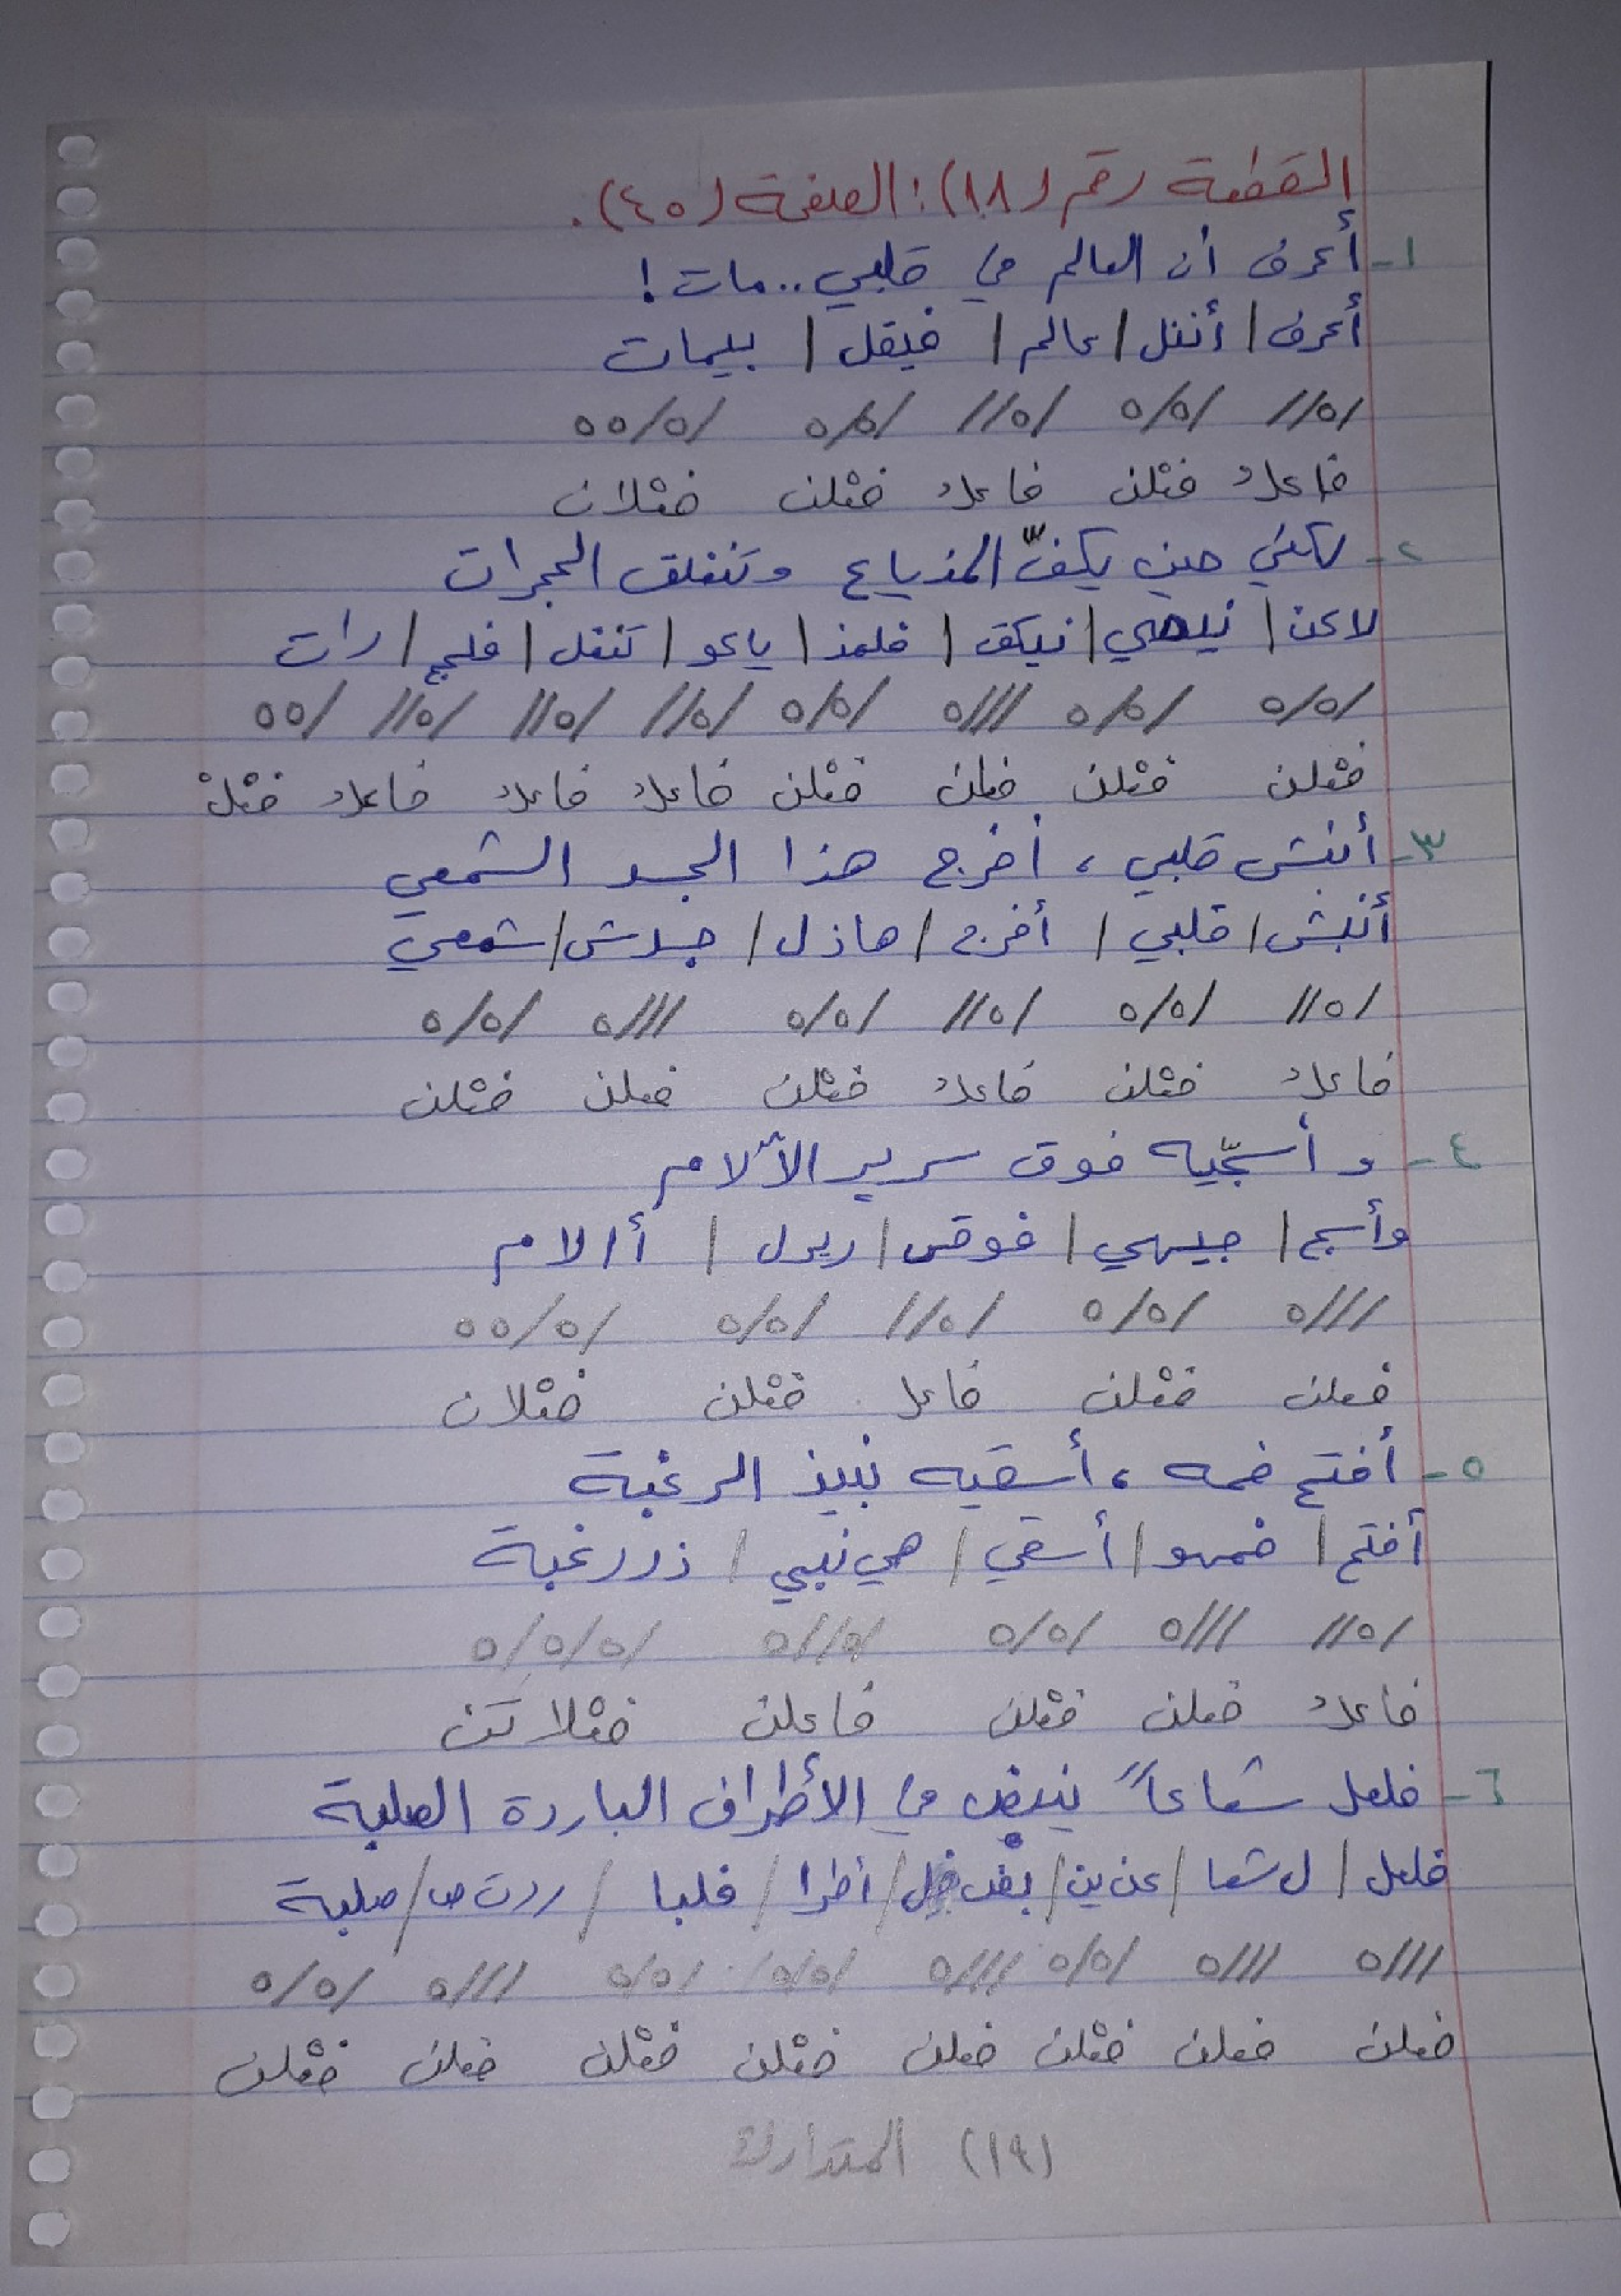 القطعة رقم (١٨): الصفحة (٤٥).
١- أعرف أن العالم في قلبي.. مات!
أعرف / أننل / عالم / فيقل / بيمات
/٥// /٥/٥ /٥// /٥/٥ /٥/٥٥
فاعلُ فعْلن فاعلُ فعْلن فعْلان
٢- لكني حين يكفّ المذياع وتنغلق الحجرات
لاكن / نيحي / نيكف / فلمذ / ياعو / تنغل / قلحج / رات
/٥/٥ /٥/٥ ///٥ /٥/٥ /٥// /٥// /٥// /٥٥
فعْلن فعْلن فعلن فعْلن فاعلُ فاعلُ فاعلُ فعْلْ
٣- أنبش قلبي، أخرج هذا الجسد الشمعي
أنبش / قلبي / أخرج / هاذل / جسدش / شمعي
/٥// /٥/٥ /٥// /٥/٥ ///٥ /٥/٥
فاعلُ فعْلن فاعلُ فعْلن فعلن فعْلن
٤- وأسجّيه فوق سرير الآلام
وأسج / جيهي / فوقس / ريرل / أالام
///٥ /٥/٥ /٥// /٥/٥ /٥/٥٥
فعلن فعْلن فاعل فعْلن فعْلان
٥- أفتح فمه، أسقيه نبيذ الرغبة
أفتح / فمهو / أسقي / هي نبي / ذررغبة
/٥// ///٥ /٥/٥ /٥//٥ /٥/٥/٥
فاعلُ فعلن فعْلن فاعلن فعْلاتن
٦- فلعل شعاعاً ينبض في الأطراف الباردة الصلبة
فلعل / ل شعا / عن ين / بض فل / أطرا / فلبا / ردت ص / صلبة
///٥ ///٥ /٥/٥ ///٥ /٥/٥ /٥/٥ ///٥ /٥/٥
فعلن فعلن فعْلن فعلن فعْلن فعْلن فعلن فعْلن
(١٩) المتدارك